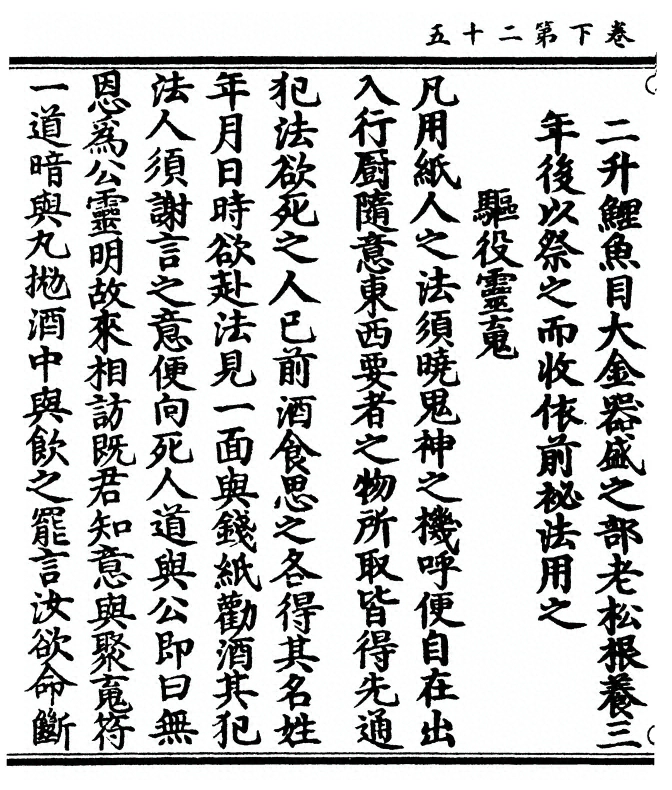 卷下第二十五
二升鯉魚目大金器盛之部老松根養三
年後以祭之而收依前祕法用之
驅役靈䰟
凡用紙人之法須曉鬼神之機呼便自在出
入行厨隨意東西要者之物所取皆得先通
犯法欲死之人已前酒食思之各得其名姓
年月日時欲赴法見一面與錢紙勸酒其犯
法人須謝言之意便向死人道與公即日無
恩為公靈明故來相訪既君知意與聚䰟符
一道暗與丸抛酒中與飲之罷言汝欲命斷